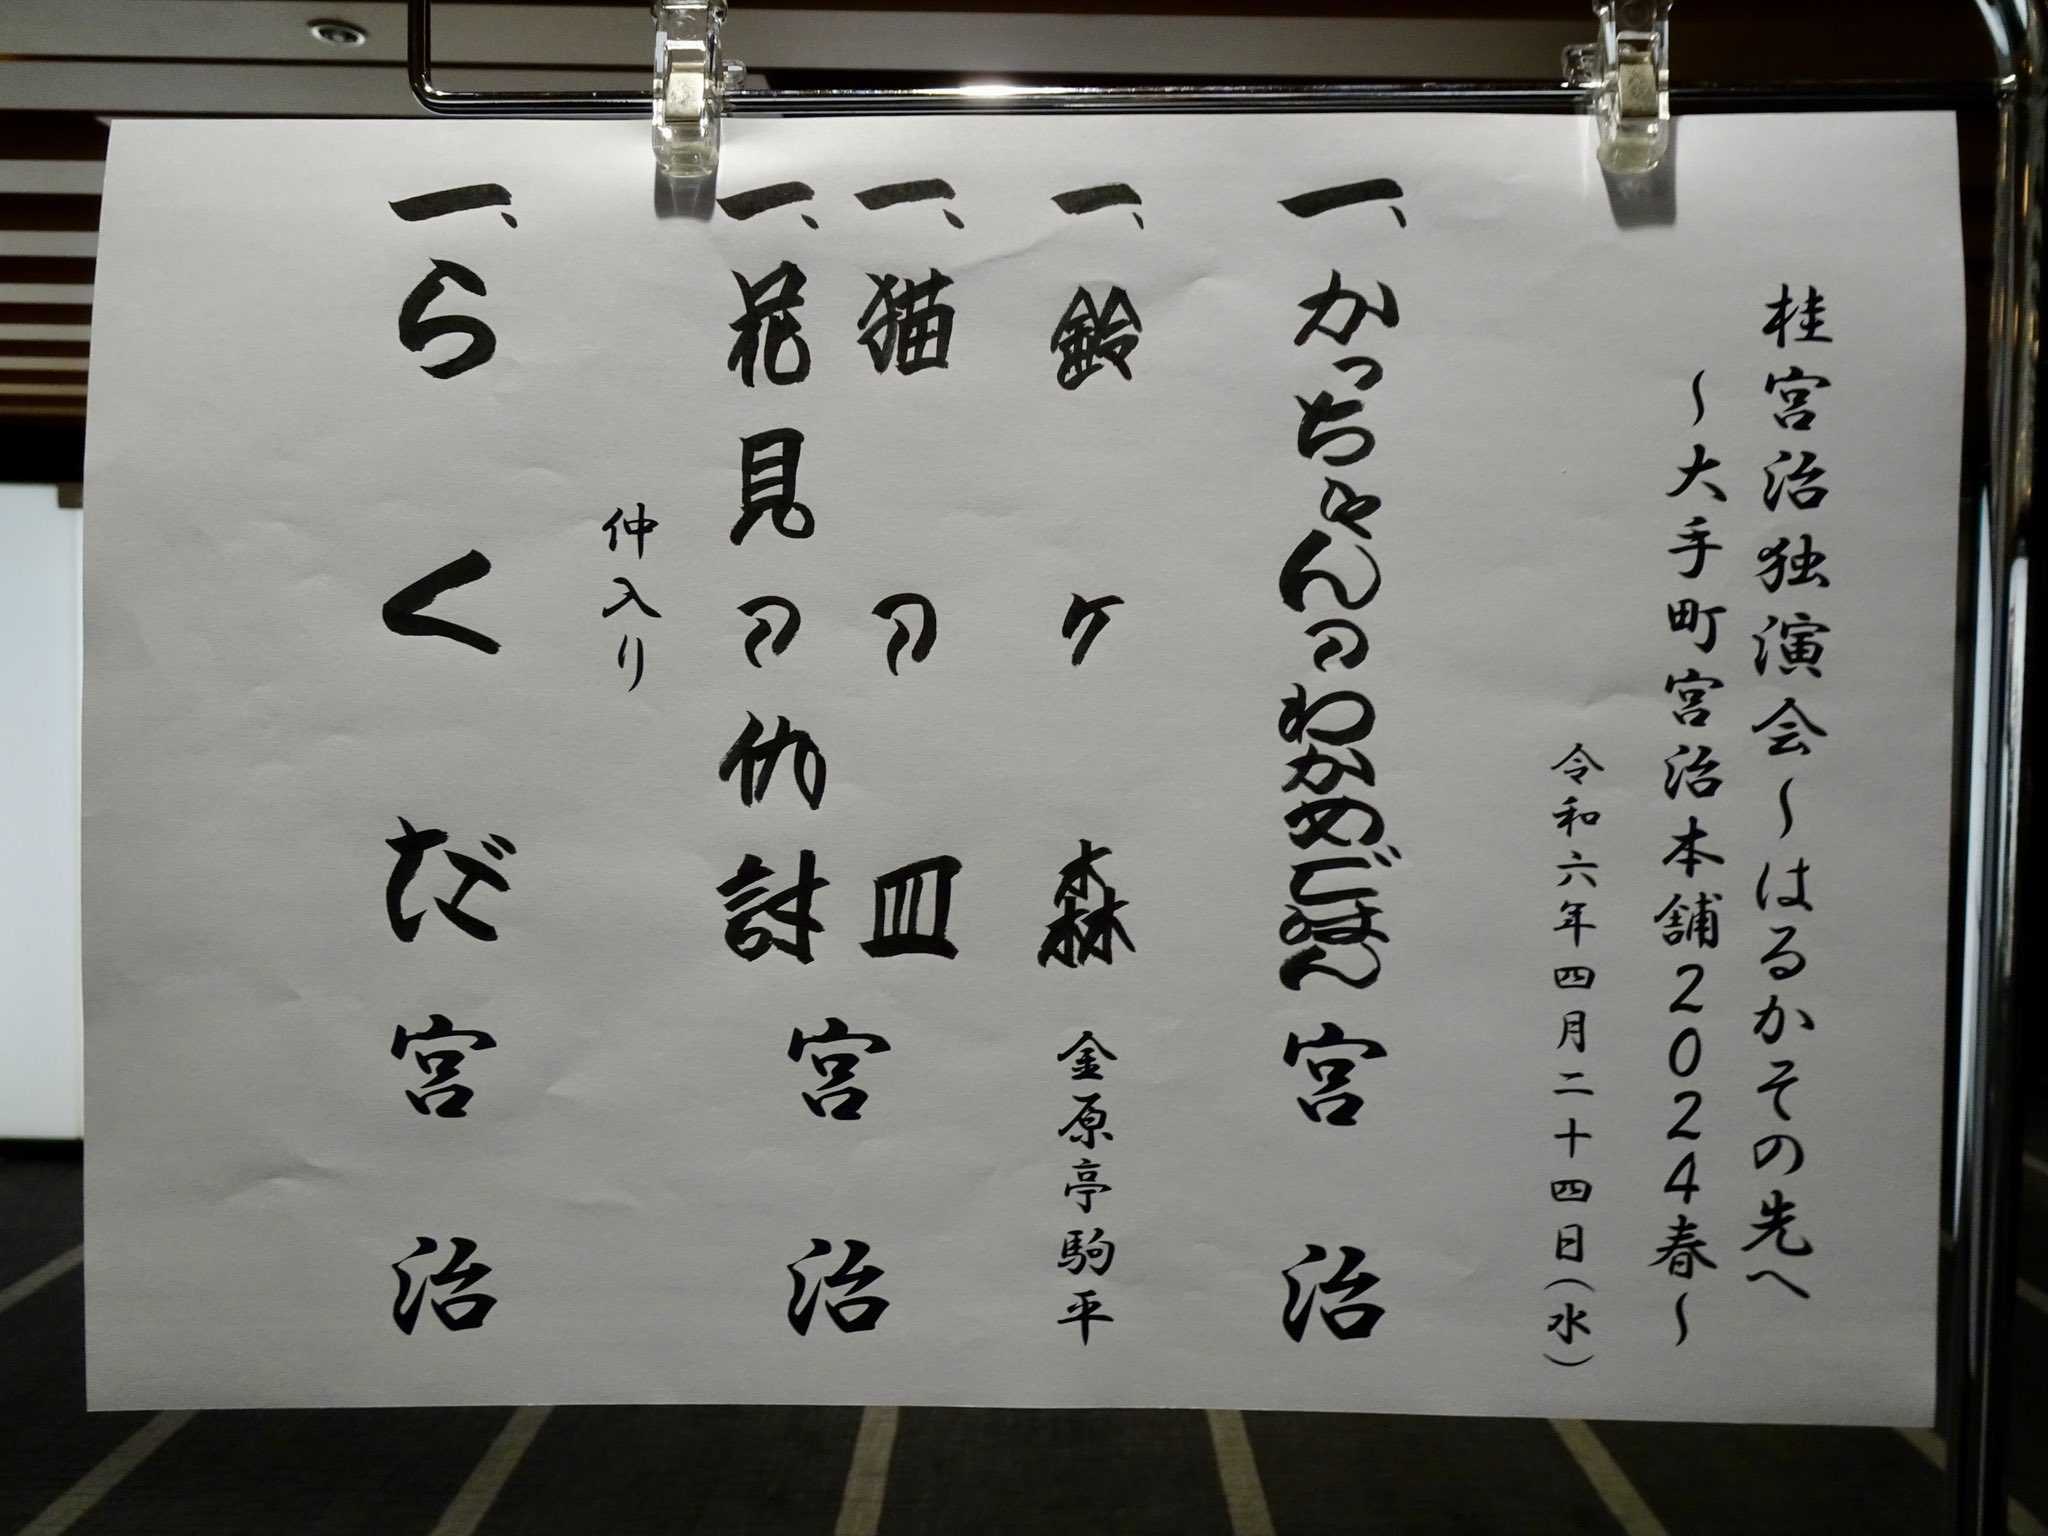 桂宮治独演会～はるかその先へ
～大手町宮治本舗2024春～
令和六年四月二十四日(水)
一、かっちゃんのわかめごはん 宮治
一、鈴ヶ森 金原亭駒平
一、猫の皿
一、花見の仇討 宮治
仲入り
一、らくだ 宮治